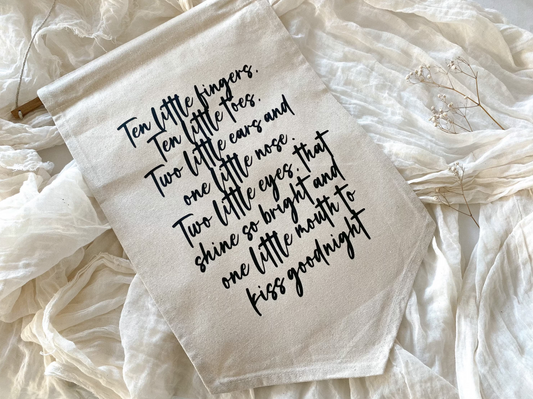 Ten little fingers.
Ten little toes.
Two little ears and
one little nose.
Two little eyes, that
shine so bright and
one little mouth to
kiss goodnight